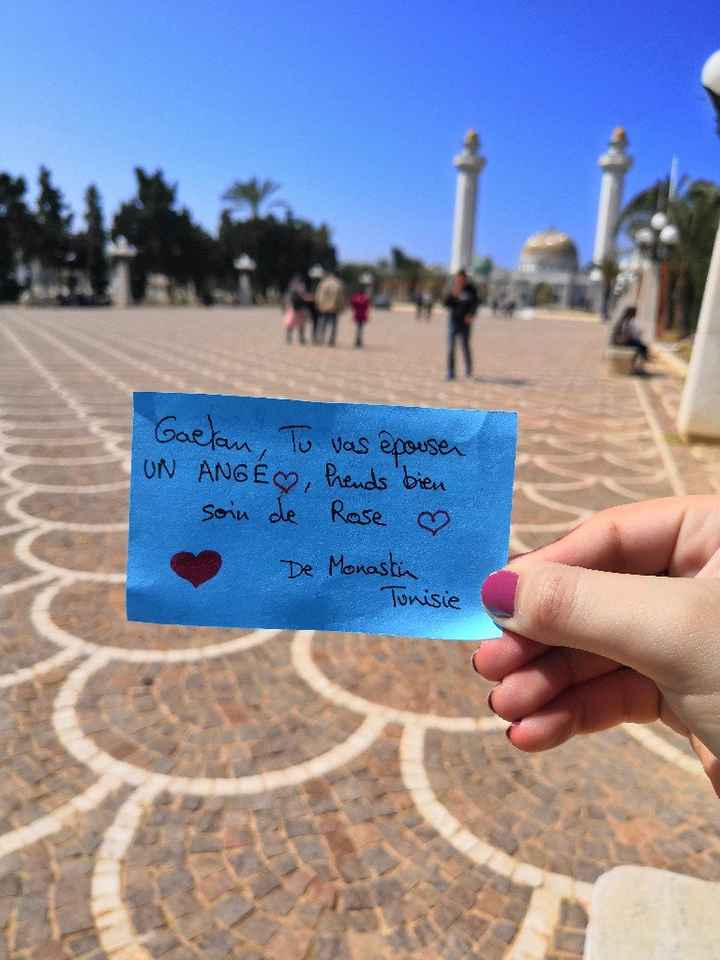 Gaetan, Tu vas épouser
UN ANGE♡, Prends bien
soin de Rose ♡
♥ De Monastir
Tunisie